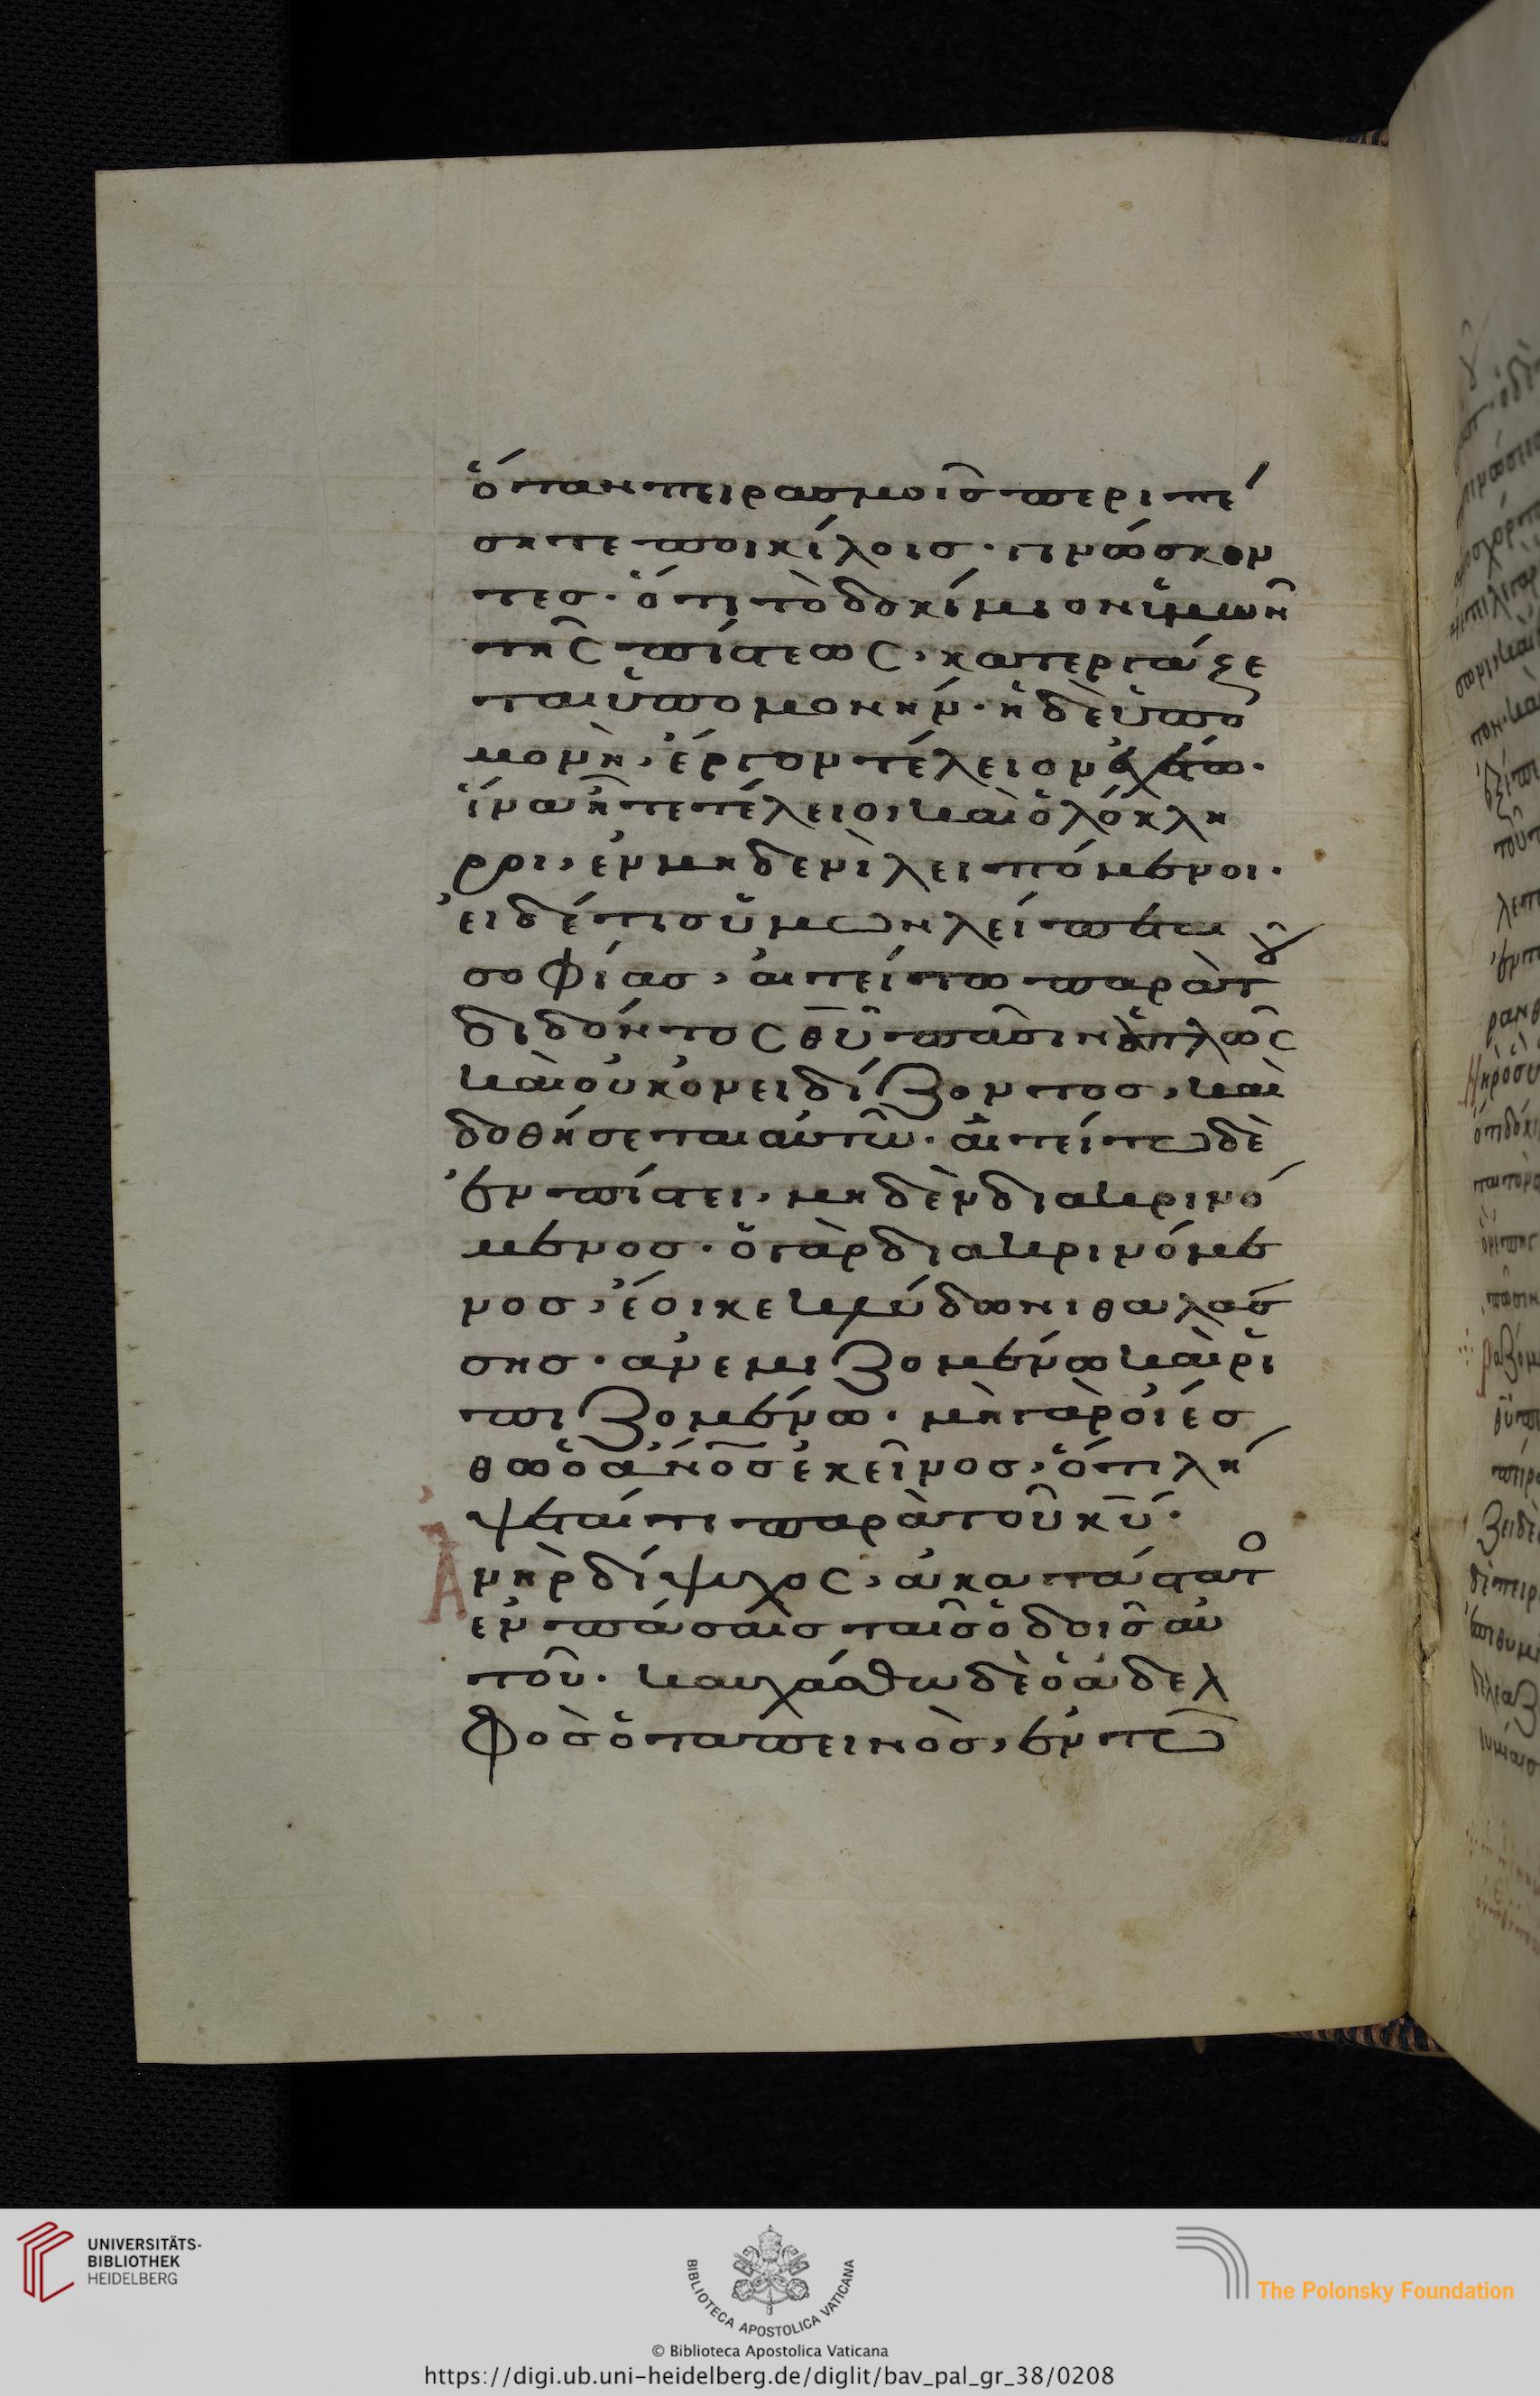 ὅταν πειρασμοῖς περιπέ
σητε ποικίλοις· γινώσκον
τες· ὅτι τὸ δοκίμιον ὑμῶν
τῆς πίστεως, κατεργάζε
ται ὑπομονήν· ἡ δὲ ὑπο
μονὴ, ἔργον τέλειον ἐχέτω·
ἵνα ἦτε τέλειοι καὶ ὁλόκλη
ροι, ἐν μηδενὶ λειπόμενοι·
εἰ δέ τις ὑμῶν λείπεται
σοφίας, αἰτείτω παρὰ τοῦ
διδόντος θυ πᾶσιν ἁπλῶς
καὶ οὐκ ὀνειδίζοντος, καὶ
δοθήσεται αὐτῶ· αἰτείτω δὲ
ἐν πίστει, μηδὲν διακρινό
μενος· ὁ γὰρ διακρινόμε
νος, ἔοικε κλύδωνι θαλάσ
σης· ἀνεμιζομένω καὶ ῥι
πιζομένω· μὴ γὰρ οἰέσ
θω ὁ ἄνος ἐκεῖνος, ὅτι λή
ψεταί τι παρὰ τοῦ κυ·
Ἀνὴρ δίψυχος, ἀκατάστατο
ἐν πάσαις ταῖς ὁδοῖς αὐ
τοῦ· καυχάσθω δὲ ὁ ἀδελ
φὸς ὁ ταπεινὸς, ἐν τῶ
UNIVERSITÄTS-
BIBLIOTHEK
HEIDELBERG
BIBLIOTECA APOSTOLICA VATICANA
The Polonsky Foundation
© Biblioteca Apostolica Vaticana
https://digi.ub.uni-heidelberg.de/diglit/bav_pal_gr_38/0208